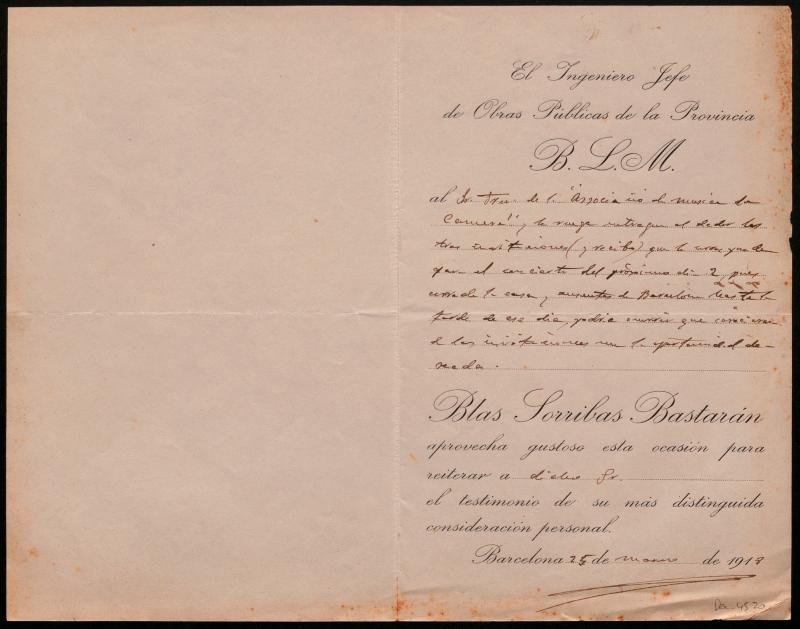 El Ingeniero Jefe
de Obras Públicas de la Provincia
B. L. M.
al Sr. de l'"Associació de musica da
Camera" y le ruega entregue al dador las
tres invitaciones (y recibo) que le
para el concierto del próximo dia 2, pues
cerrada la casa y ausentes de Barcelona hasta la
tarde de ese dia, podria ocurrir que
de las invitaciones con la oportunidad de-
seada.
Blas Sorribas Bastarán
aprovecha gustoso esta ocasión para
reiterar a dicho Sr.
el testimonio de su más distinguida
consideración personal.
Barcelona 25 de marzo de 1918
Do. 4520